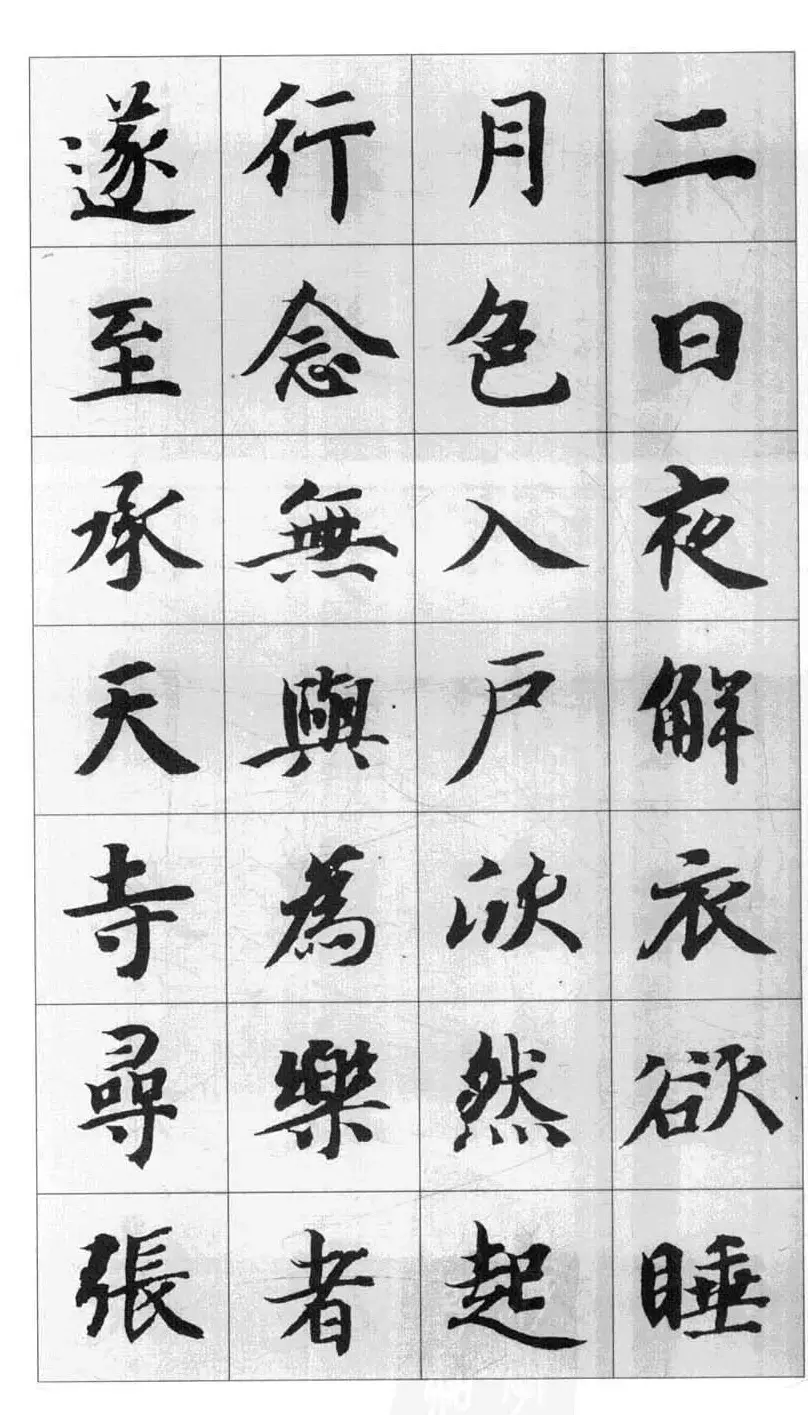 二日夜解衣欲睡
月色入戶欣然起
行念無與為樂者
遂至承天寺尋張